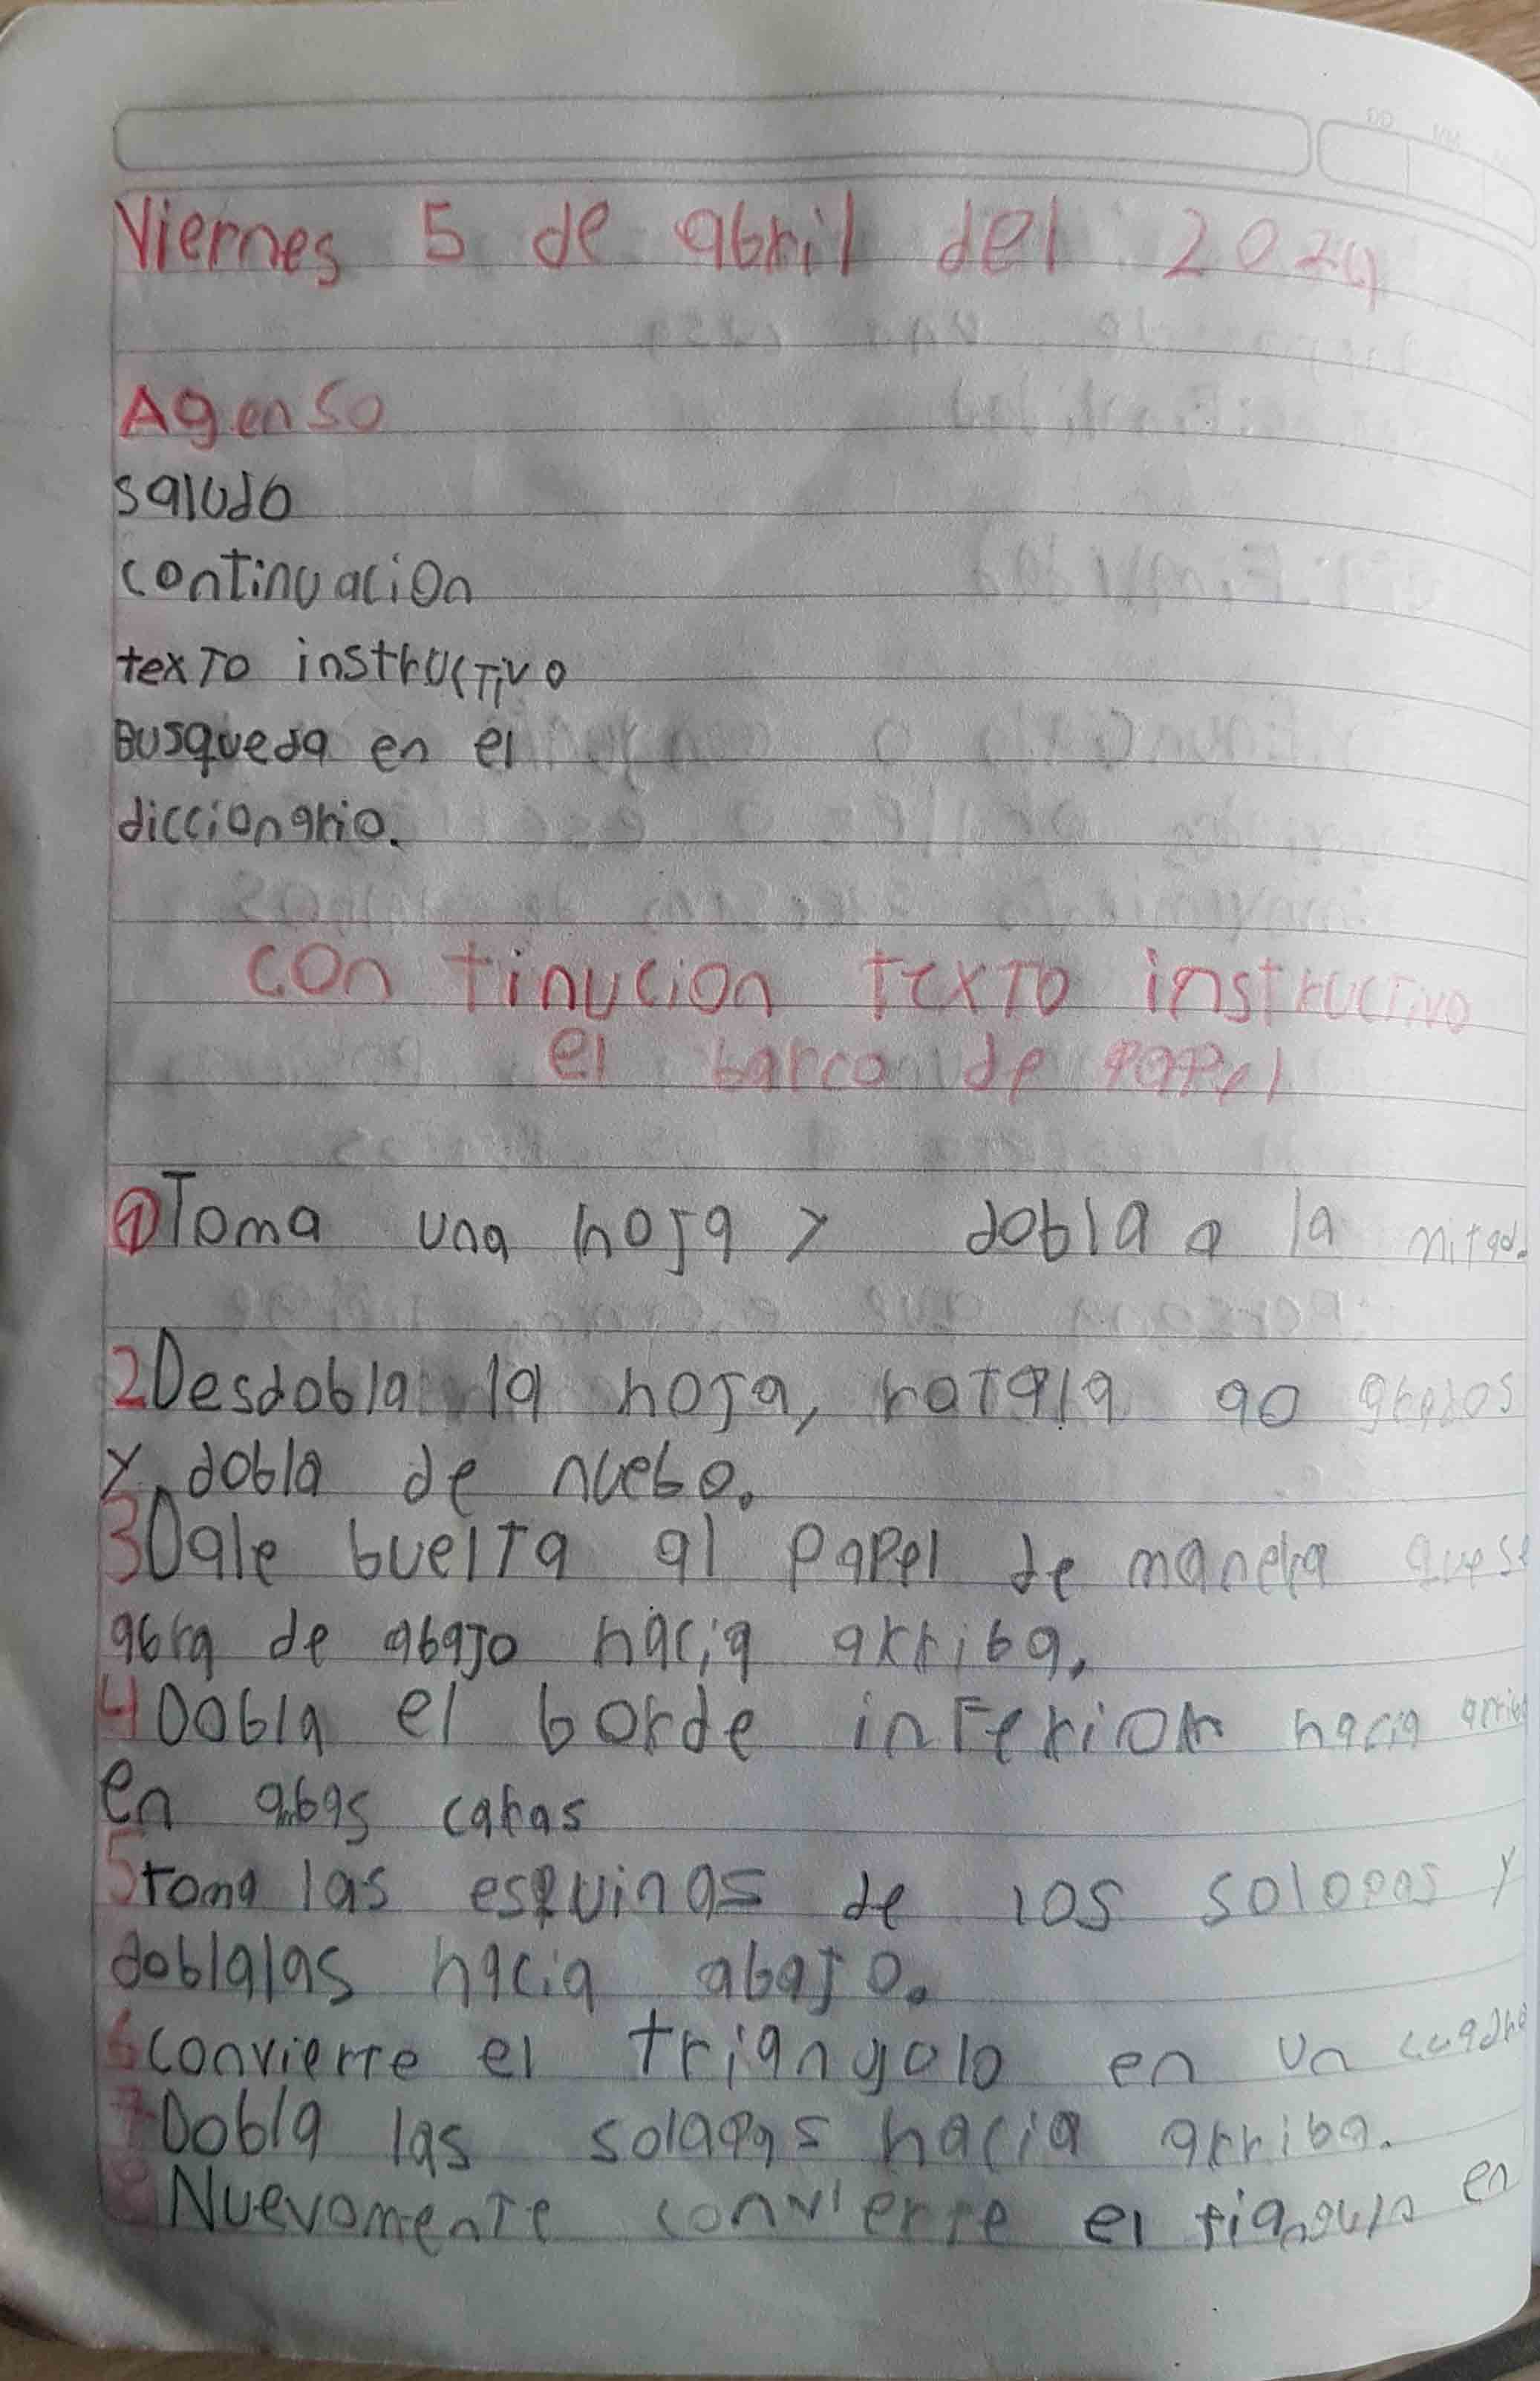 Viernes 5 de abril del 2024
Agenso
saludo
continuacion
texto instructivo
Busqueda en el
diccionario.
con tinucion texto instructivo
el barco de papel
1 Toma una hoja y dobla a la mitad.
2 Desdobla la hoja, rotala 90 grados
y dobla de nuebo.
3 Dale buelta al papel de manera que se
abra de abajo hacia arriba.
4 Dobla el borde inferior hacia
en abas caras
5 toma las esquinas de los solopas y
doblalas hacia abajo.
6 convierte el triangolo en un
7 Dobla las solapas hacia arriba.
8 Nuevomente convierte el tiangulo en